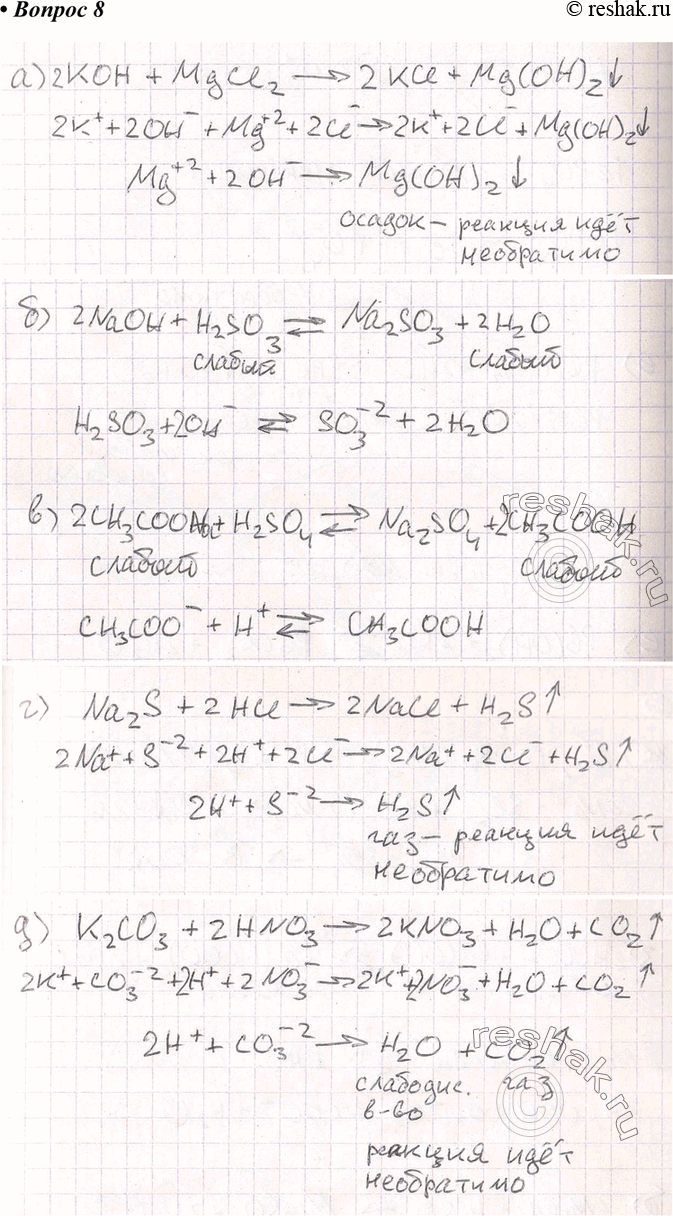 • Вопрос 8
© reshak.ru
а) 2KOH + MgCl₂ ⟶ 2KCl + Mg(OH)₂↓
2K⁺ + 2OH⁻ + Mg⁺² + 2Cl⁻ → 2K⁺ + 2Cl⁻ + Mg(OH)₂↓
Mg⁺² + 2OH⁻ ⟶ Mg(OH)₂↓
осадок – реакция идёт
необратимо
б) 2NaOH + H₂SO₃ ⇄ Na₂SO₃ + 2H₂O
слабый слабый
H₂SO₃ + 2OH⁻ ⇄ SO₃⁻² + 2H₂O
в) 2CH₃COONa + H₂SO₄ ⇄ Na₂SO₄ + 2CH₃COOH
слабый слабый
CH₃COO⁻ + H⁺ ⇄ CH₃COOH
reshak.ru
г) Na₂S + 2HCl ⟶ 2NaCl + H₂S↑
2Na⁺ + S⁻² + 2H⁺ + 2Cl⁻ → 2Na⁺ + 2Cl⁻ + H₂S↑
2H⁺ + S⁻² ⟶ H₂S↑
газ – реакция идёт
необратимо
д) K₂CO₃ + 2HNO₃ ⟶ 2KNO₃ + H₂O + CO₂↑
2K⁺ + CO₃⁻² + 2H⁺ + 2NO₃⁻ → 2K⁺ + 2NO₃⁻ + H₂O + CO₂↑
2H⁺ + CO₃⁻² ⟶ H₂O + CO₂↑
слабодис. газ
в-во
реакция идёт
необратимо
reshak.ru